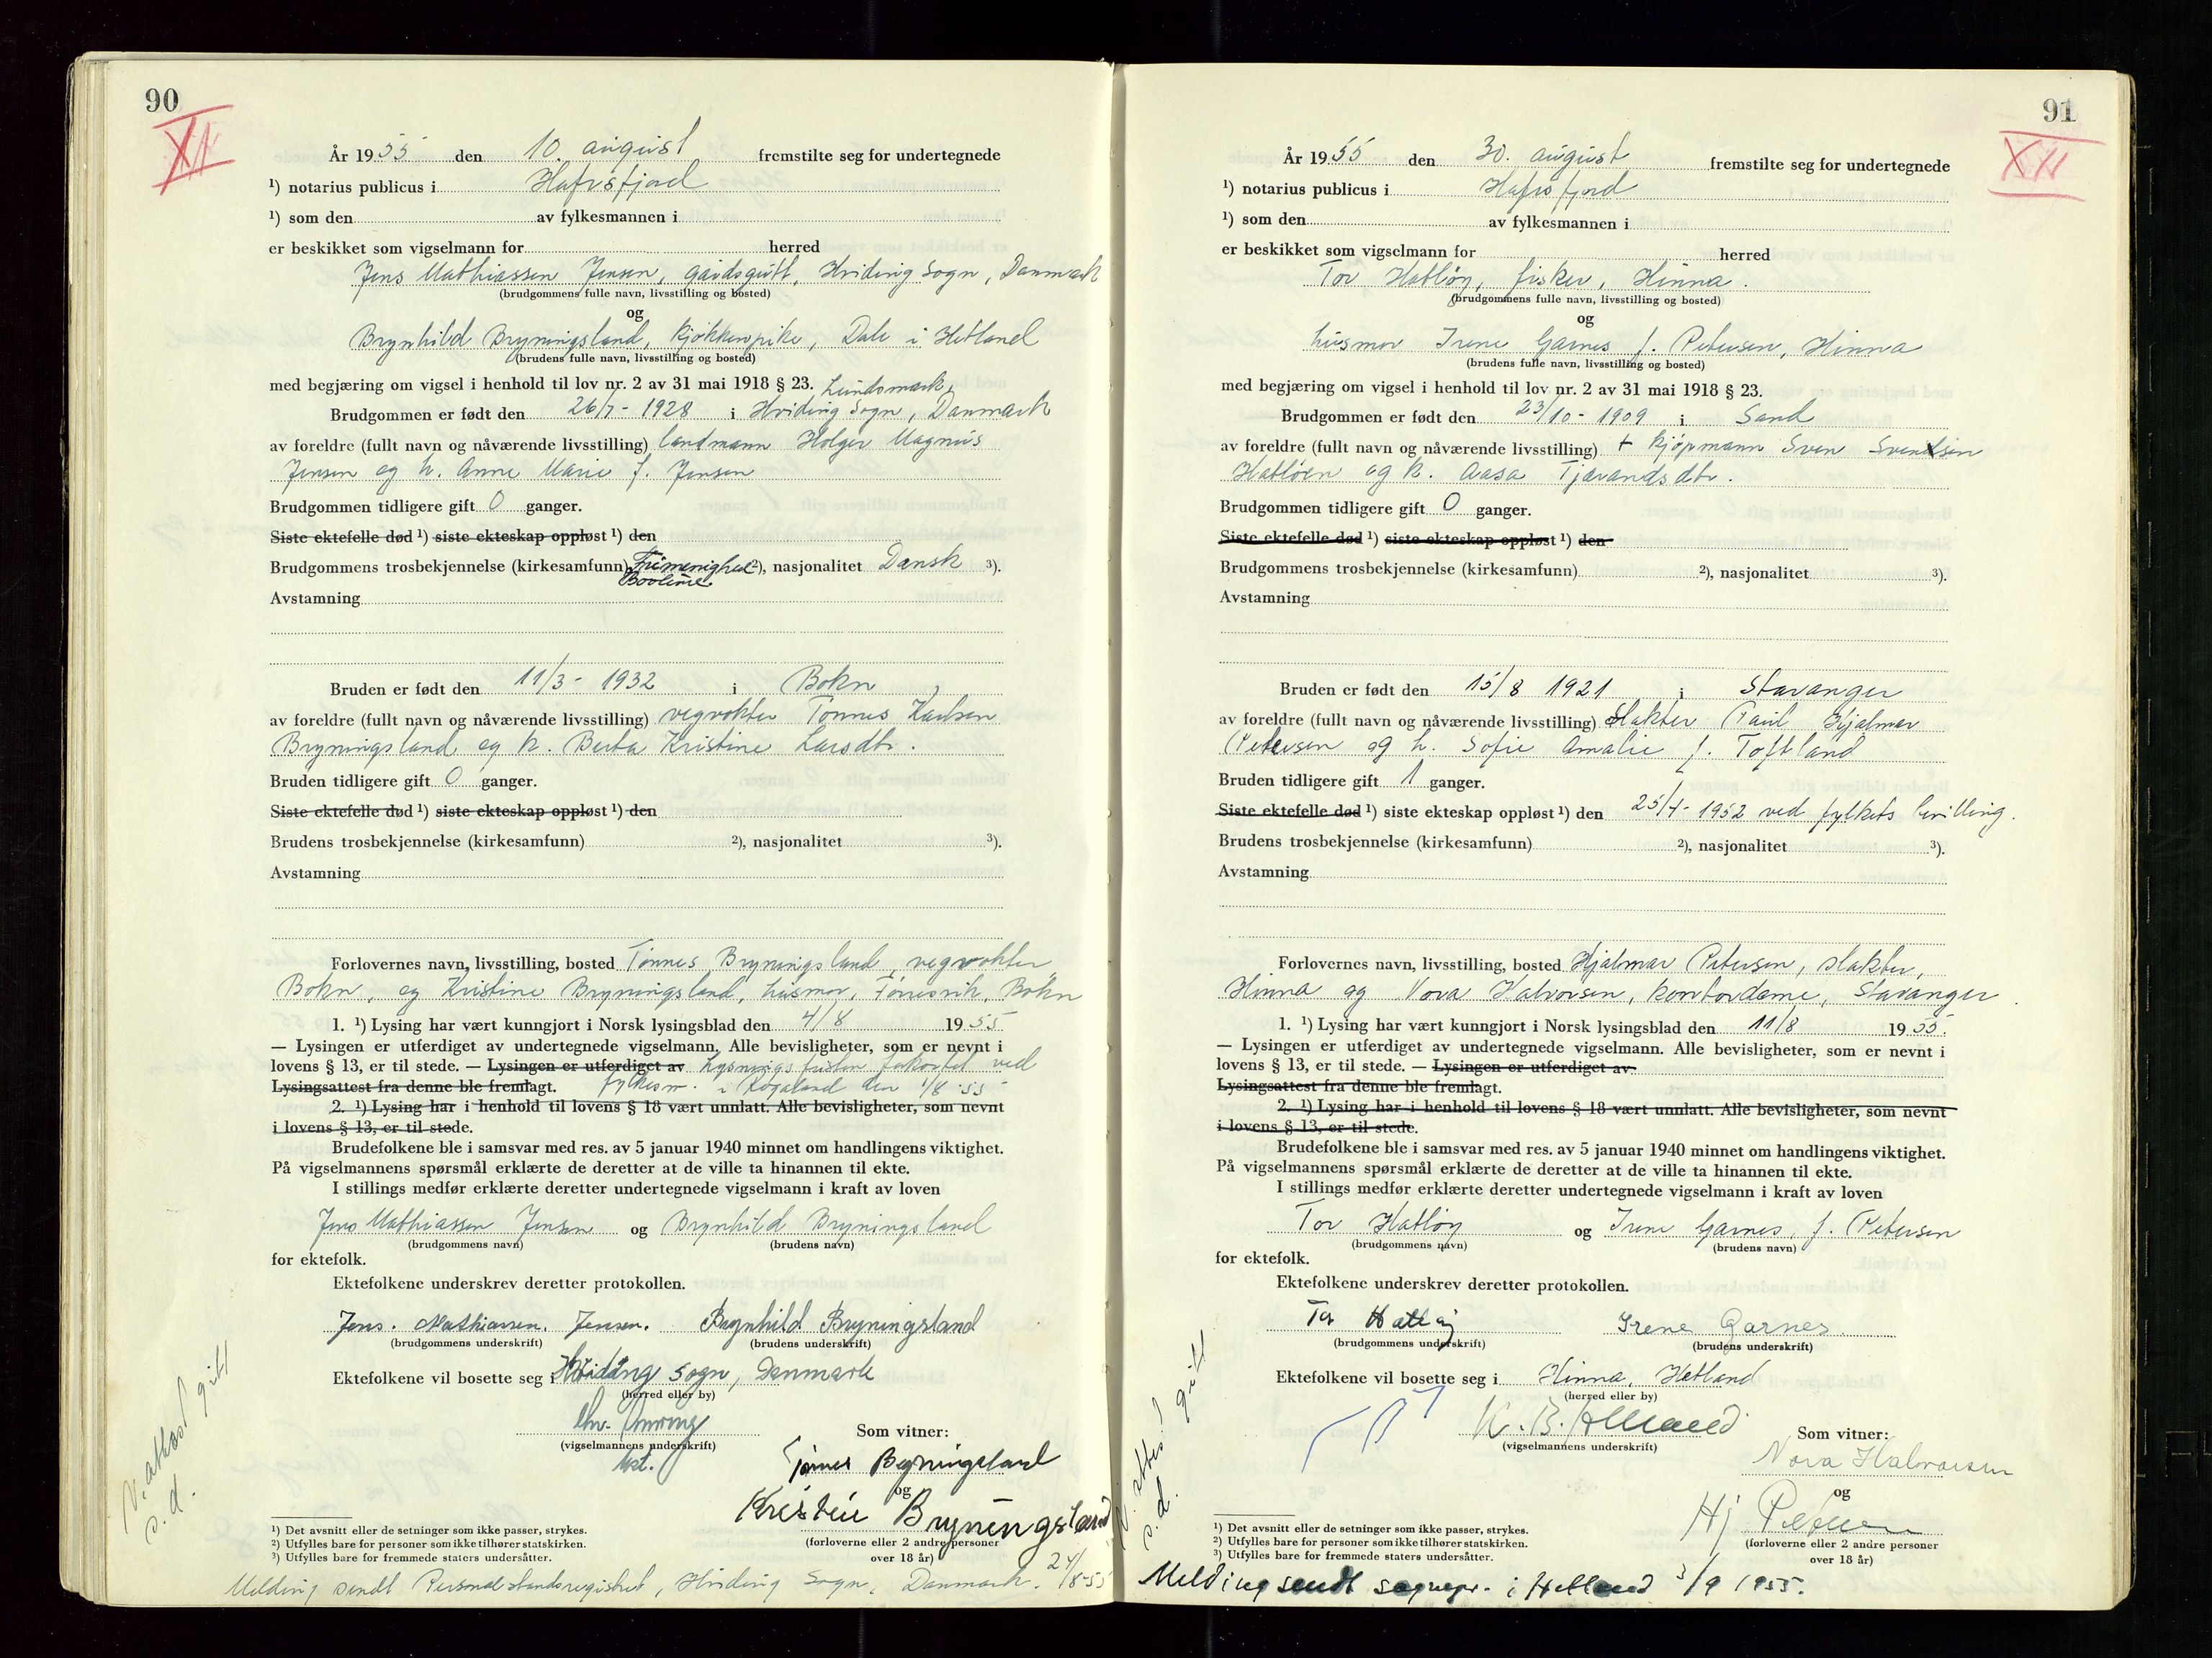 90
XI
År 1955 den 10. august fremstilte seg for undertegnede
¹) notarius publicus i Hafrsfjord
¹) som den av fylkesmannen i
er beskikket som vigselmann for herred
Jens Mathiassen Jensen, gårdsgutt, Hviding Sogn, Danmark
(brudgommens fulle navn, livsstilling og bosted)
og
Brynhild Bryningsland, kjøkkenpike, Dale i Hetland
(brudens fulle navn, livsstilling og bosted)
med begjæring om vigsel i henhold til lov nr. 2 av 31 mai 1918 § 23. Lundsmark,
Brudgommen er født den 26/7 - 1928 i Hviding Sogn, Danmark
av foreldre (fullt navn og nåværende livsstilling) landmann Holger Magnus
Jensen og h. Anne Marie f. Jensen
Brudgommen tidligere gift 0 ganger.
Siste ektefelle død ¹) siste ekteskap oppløst ¹) den
Brudgommens trosbekjennelse (kirkesamfunn) Frimenighed ²), nasjonalitet Dansk ³).
Avstamning
Bruden er født den 11/3 - 1932 i Bokn
av foreldre (fullt navn og nåværende livsstilling) vegvokter Tønnes Karlsen
Bryningsland og h. Berta Kristine Larsdtr.
Bruden tidligere gift 0 ganger.
Siste ektefelle død ¹) siste ekteskap oppløst ¹) den
Brudens trosbekjennelse (kirkesamfunn) ²), nasjonalitet ³).
Avstamning
Forlovernes navn, livsstilling, bosted Tønnes Bryningsland, vegvokter
Bokn, og Kristine Bryningsland, husmor, Føresvik, Bokn
1. ¹) Lysing har vært kunngjort i Norsk lysingsblad den 4/8 1955
— Lysingen er utferdiget av undertegnede vigselmann. Alle bevisligheter, som er nevnt i
lovens § 13, er til stede. — Lysingen er utferdiget av Lysningsfristen forkortet ved
Lysingsattest fra denne ble fremlagt. fylkesm. i Rogaland den 1/8 55
2. ¹) Lysing har i henhold til lovens § 18 vært unnlatt. Alle bevisligheter, som nevnt
i lovens § 13, er til stede.
Brudefolkene ble i samsvar med res. av 5 januar 1940 minnet om handlingens viktighet.
På vigselmannens spørsmål erklærte de deretter at de ville ta hinannen til ekte.
I stillings medfør erklærte deretter undertegnede vigselmann i kraft av loven
Jens Mathiassen Jensen og Brynhild Bryningsland
(brudgommens navn) (brudens navn)
for ektefolk.
Ektefolkene underskrev deretter protokollen.
Jens. Mathiassen. Jensen. Brynhild Bryningsland
(brudgommens underskrift) (brudens underskrift)
Ektefolkene vil bosette seg i Hvidding sogn, Danmark
(herred eller by)
(vigselmannens underskrift)
Som vitner:
Tønnes Bryningsland
og
Kristine Bryningsland
(forloverne eller 2 andre personer
over 18 år)
V. attest gitt
s. d.
¹) Det avsnitt eller de setninger som ikke passer, strykes.
²) Utfylles bare for personer som ikke tilhører statskirken.
³) Utfylles bare for fremmede staters undersåtter.
Melding sendt Personalstandsregistret, Hviding Sogn, Danmark. 24/8-55
91
XII
År 1955 den 30. august fremstilte seg for undertegnede
¹) notarius publicus i Hafrsfjord
¹) som den av fylkesmannen i
er beskikket som vigselmann for herred
Tor Hatløy, fisker, Hinna.
(brudgommens fulle navn, livsstilling og bosted)
og
husmor Irene Garnes f. Petersen, Hinna
(brudens fulle navn, livsstilling og bosted)
med begjæring om vigsel i henhold til lov nr. 2 av 31 mai 1918 § 23.
Brudgommen er født den 23/10 - 1909 i Sand
av foreldre (fullt navn og nåværende livsstilling) + kjøpmann Sven Svendsen
Hatløen og h. Aasa Tjerandsdtr.
Brudgommen tidligere gift 0 ganger.
Siste ektefelle død ¹) siste ekteskap oppløst ¹) den
Brudgommens trosbekjennelse (kirkesamfunn) ²), nasjonalitet ³).
Avstamning
Bruden er født den 15/8 1921 i Stavanger
av foreldre (fullt navn og nåværende livsstilling) slakter Paul Hjalmar
Petersen og h. Sofie Amalie f. Toftland
Bruden tidligere gift 1 ganger.
Siste ektefelle død ¹) siste ekteskap oppløst ¹) den 25/4 - 1952 ved fylkets bevilling.
Brudens trosbekjennelse (kirkesamfunn) ²), nasjonalitet ³).
Avstamning
Forlovernes navn, livsstilling, bosted Hjalmar Petersen, slakter,
Hinna og Nora Halvorsen, kontordame, Stavanger.
1. ¹) Lysing har vært kunngjort i Norsk lysingsblad den 11/8 1955.
— Lysingen er utferdiget av undertegnede vigselmann. Alle bevisligheter, som er nevnt i
lovens § 13, er til stede. — Lysingen er utferdiget av
Lysingsattest fra denne ble fremlagt.
2. ¹) Lysing har i henhold til lovens § 18 vært unnlatt. Alle bevisligheter, som nevnt
i lovens § 13, er til stede.
Brudefolkene ble i samsvar med res. av 5 januar 1940 minnet om handlingens viktighet.
På vigselmannens spørsmål erklærte de deretter at de ville ta hinannen til ekte.
I stillings medfør erklærte deretter undertegnede vigselmann i kraft av loven
Tor Hatløy og Irene Garnes, f. Petersen
(brudgommens navn) (brudens navn)
for ektefolk.
Ektefolkene underskrev deretter protokollen.
Tor Hatløy Irene Garnes.
(brudgommens underskrift) (brudens underskrift)
Ektefolkene vil bosette seg i Hinna, Hetland
(herred eller by)
(vigselmannens underskrift)
Som vitner:
Nora Halvorsen
og
Hj Petersen
(forloverne eller 2 andre personer
over 18 år)
V. attest gitt
s. d.
¹) Det avsnitt eller de setninger som ikke passer, strykes.
²) Utfylles bare for personer som ikke tilhører statskirken.
³) Utfylles bare for fremmede staters undersåtter.
Melding sendt sognepr. i Hetland 3/9 1955.